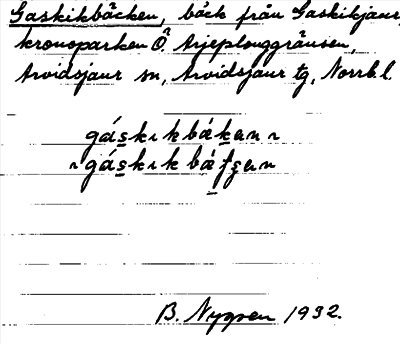 Gaskikbäcken, bäck från Gaskikjaur,
kronoparken Ö. Arjeplouggränsen,
Arvidsjaur sn, Arvidsjaur tg, Norrb.l.
gáskikbäkən
gáskikbä
B. Nygren 1932.